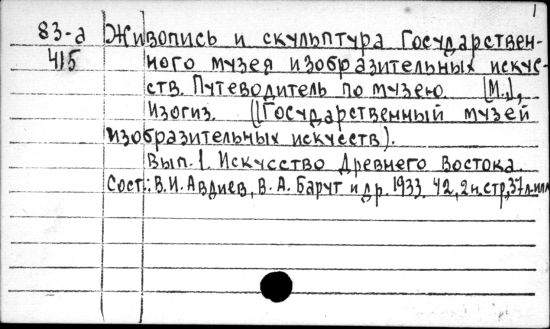 1
83-а Живопись и скульптура Государствен-
415 ного музея изобразительных искус-
ств. Путеводитель по музею. [М.],
Изогиз. ([Государственный музей
изобразительных искусств).
Вып. 1. Искусство Древнего Востока.
Сост.: В.И. Авдиев, В.А. Барут и др. 1933. 42, 2 н.стр, 37 л. илл